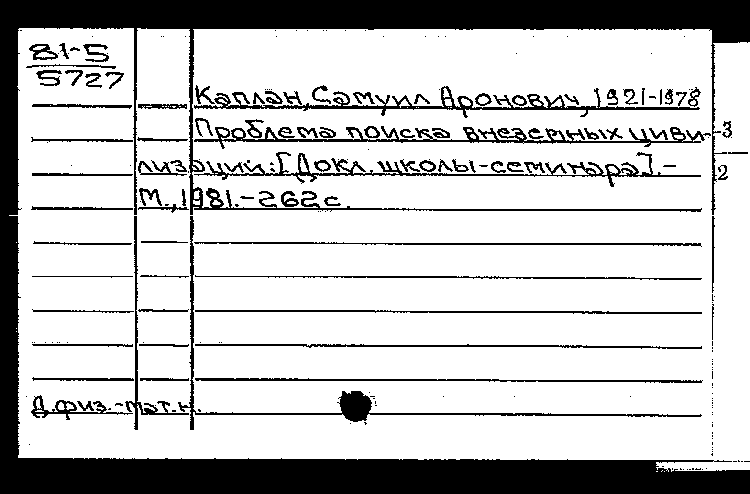 81-5
5727
Каплан, Самуил Аронович, 1921-1978
Проблема поиска внеземных циви-
лизаций: [Докл. школы-семинара]. -
М., 1981. - 262 с.
Д. физ.-мат. н.
-3
2